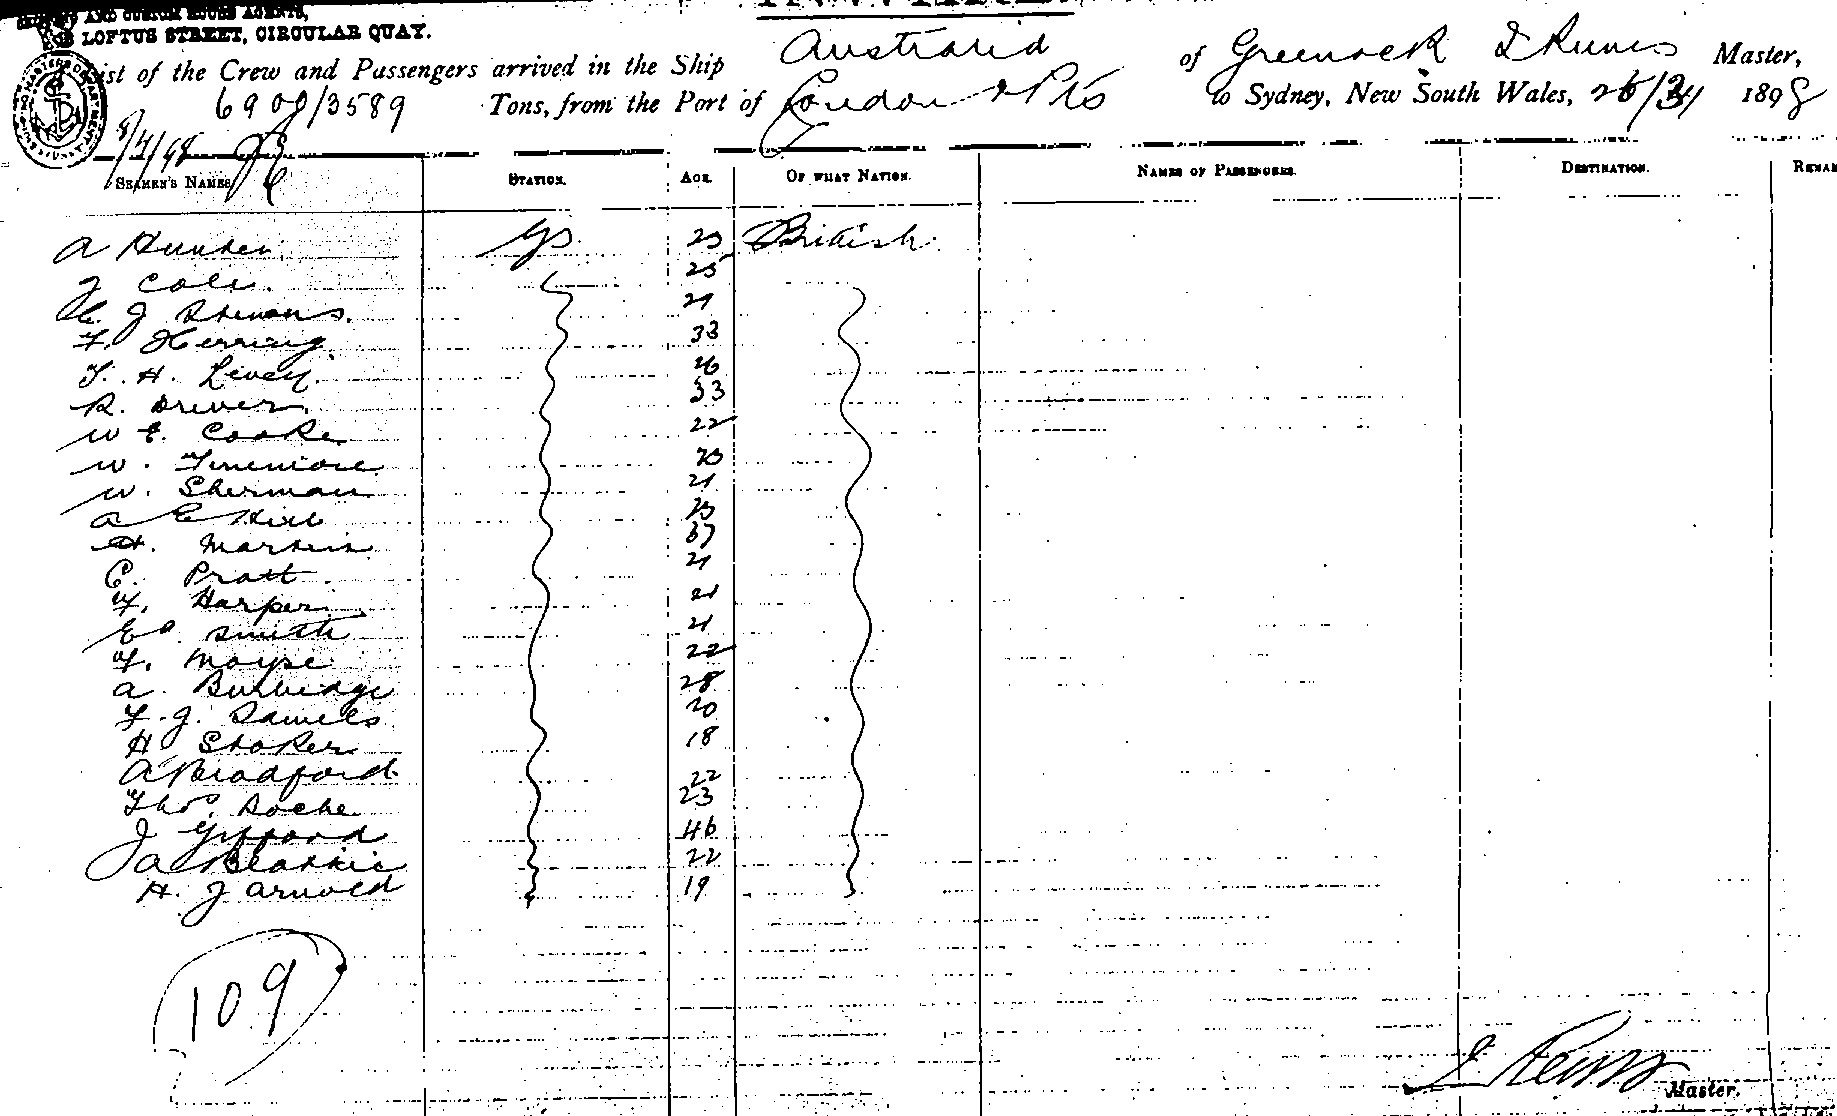 AND CUSTOM HOUSE AGENTS,
LOFTUS STREET, CIRCULAR QUAY.
List of the Crew and Passengers arrived in the Ship Australia of Greenock Master,
6901/3589 Tons, from the Port of London & Pts to Sydney, New South Wales, 1898
SEAMEN'S NAMES STATION. AGE. OF WHAT NATION. NAMES OF PASSENGERS. DESTINATION.
A Hunter GS. 23 British
J Cole. 25
C. J Stevens. 21
F. Herring. 33
T. H. Livey. 26
R. Drever. 33
W E. Cooke 22
W. 23
W. Sherman 21
A E 23
H. Martin 37
C. Pratt. 21
F. Harper 21
Ed. Smith 21
F. Moyse 22
A. Burbidge 28
F. J. Daniels 20
H Stoker 18
A Bradford 22
Thos. Roche 23
J Gifford 46
J A Beattie 22
H. J Arnold 19
109
Master.